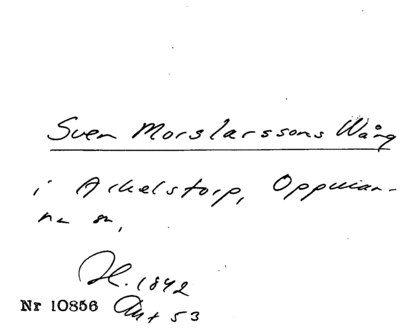 Sven Morslarssons Wång
i Ackelstorp, Oppman-
na sn,
H. 1842
Nr 10856 Ant 53